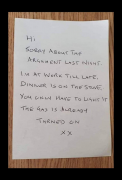 Hi
SORRY ABOUT THE
ARGUMENT LAST NIGHT.
I'M AT WORK TILL LATE.
DINNER IS ON THE STOVE
YOU ONLY HAVE TO LIGHT IT
THE GAS IS ALREADY
TURNED ON
XX